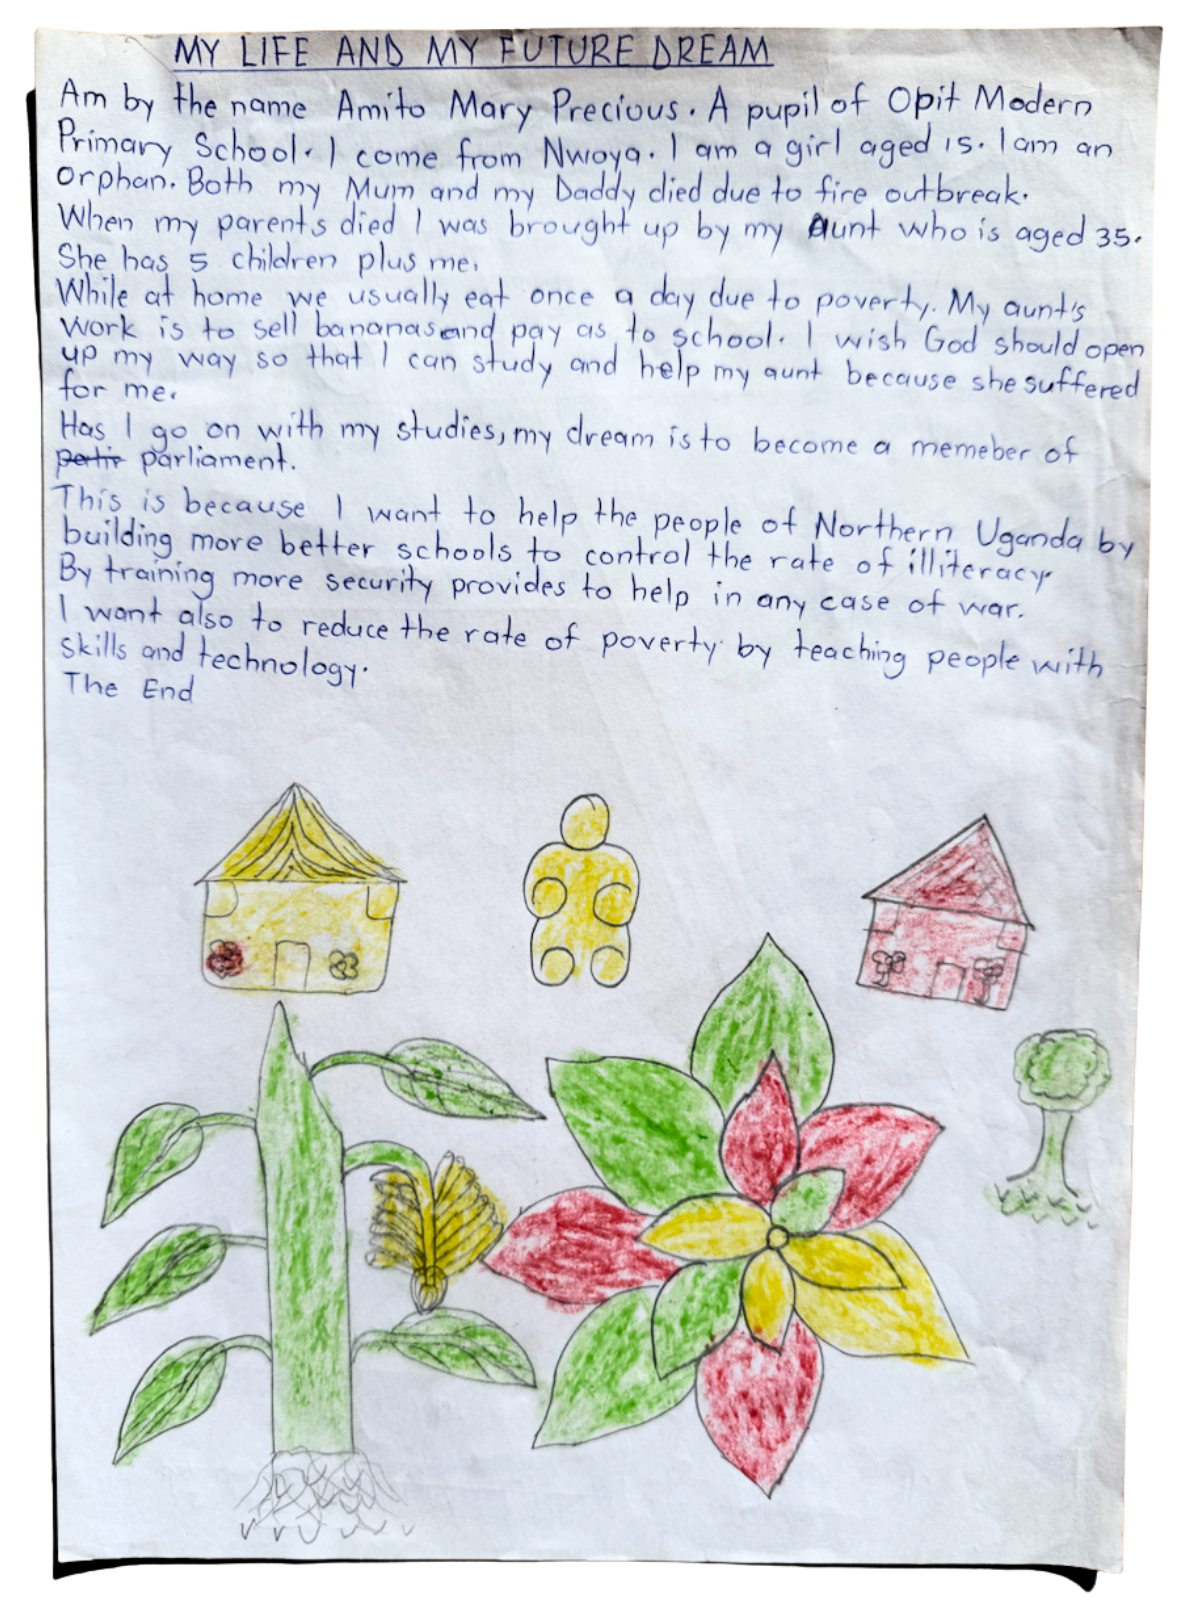 MY LIFE AND MY FUTURE DREAM
Am by the name Amito Mary Precious. A pupil of Opit Modern
Primary School. I come from Nwoya. I am a girl aged 15. I am an
orphan. Both my Mum and my Daddy died due to fire outbreak.
When my parents died I was brought up by my Aunt who is aged 35.
She has 5 children plus me.
While at home we usually eat once a day due to poverty. My aunt's
work is to sell bananas and pay as to school. I wish God should open
up my way so that I can study and help my aunt because she suffered
for me.
Has I go on with my studies, my dream is to become a memeber of
parliament.
This is because I want to help the people of Northern Uganda by
building more better schools to control the rate of illiteracy.
By training more security provides to help in any case of war.
I want also to reduce the rate of poverty by teaching people with
skills and technology.
The End